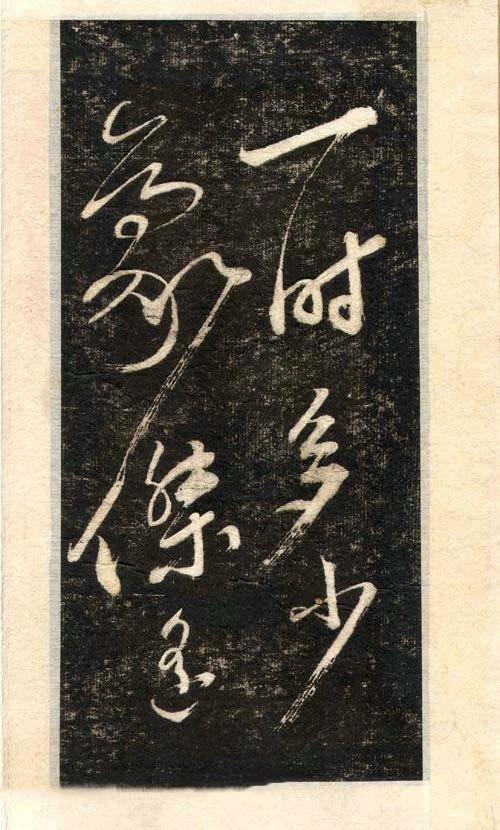 一时多少
豪傑遥